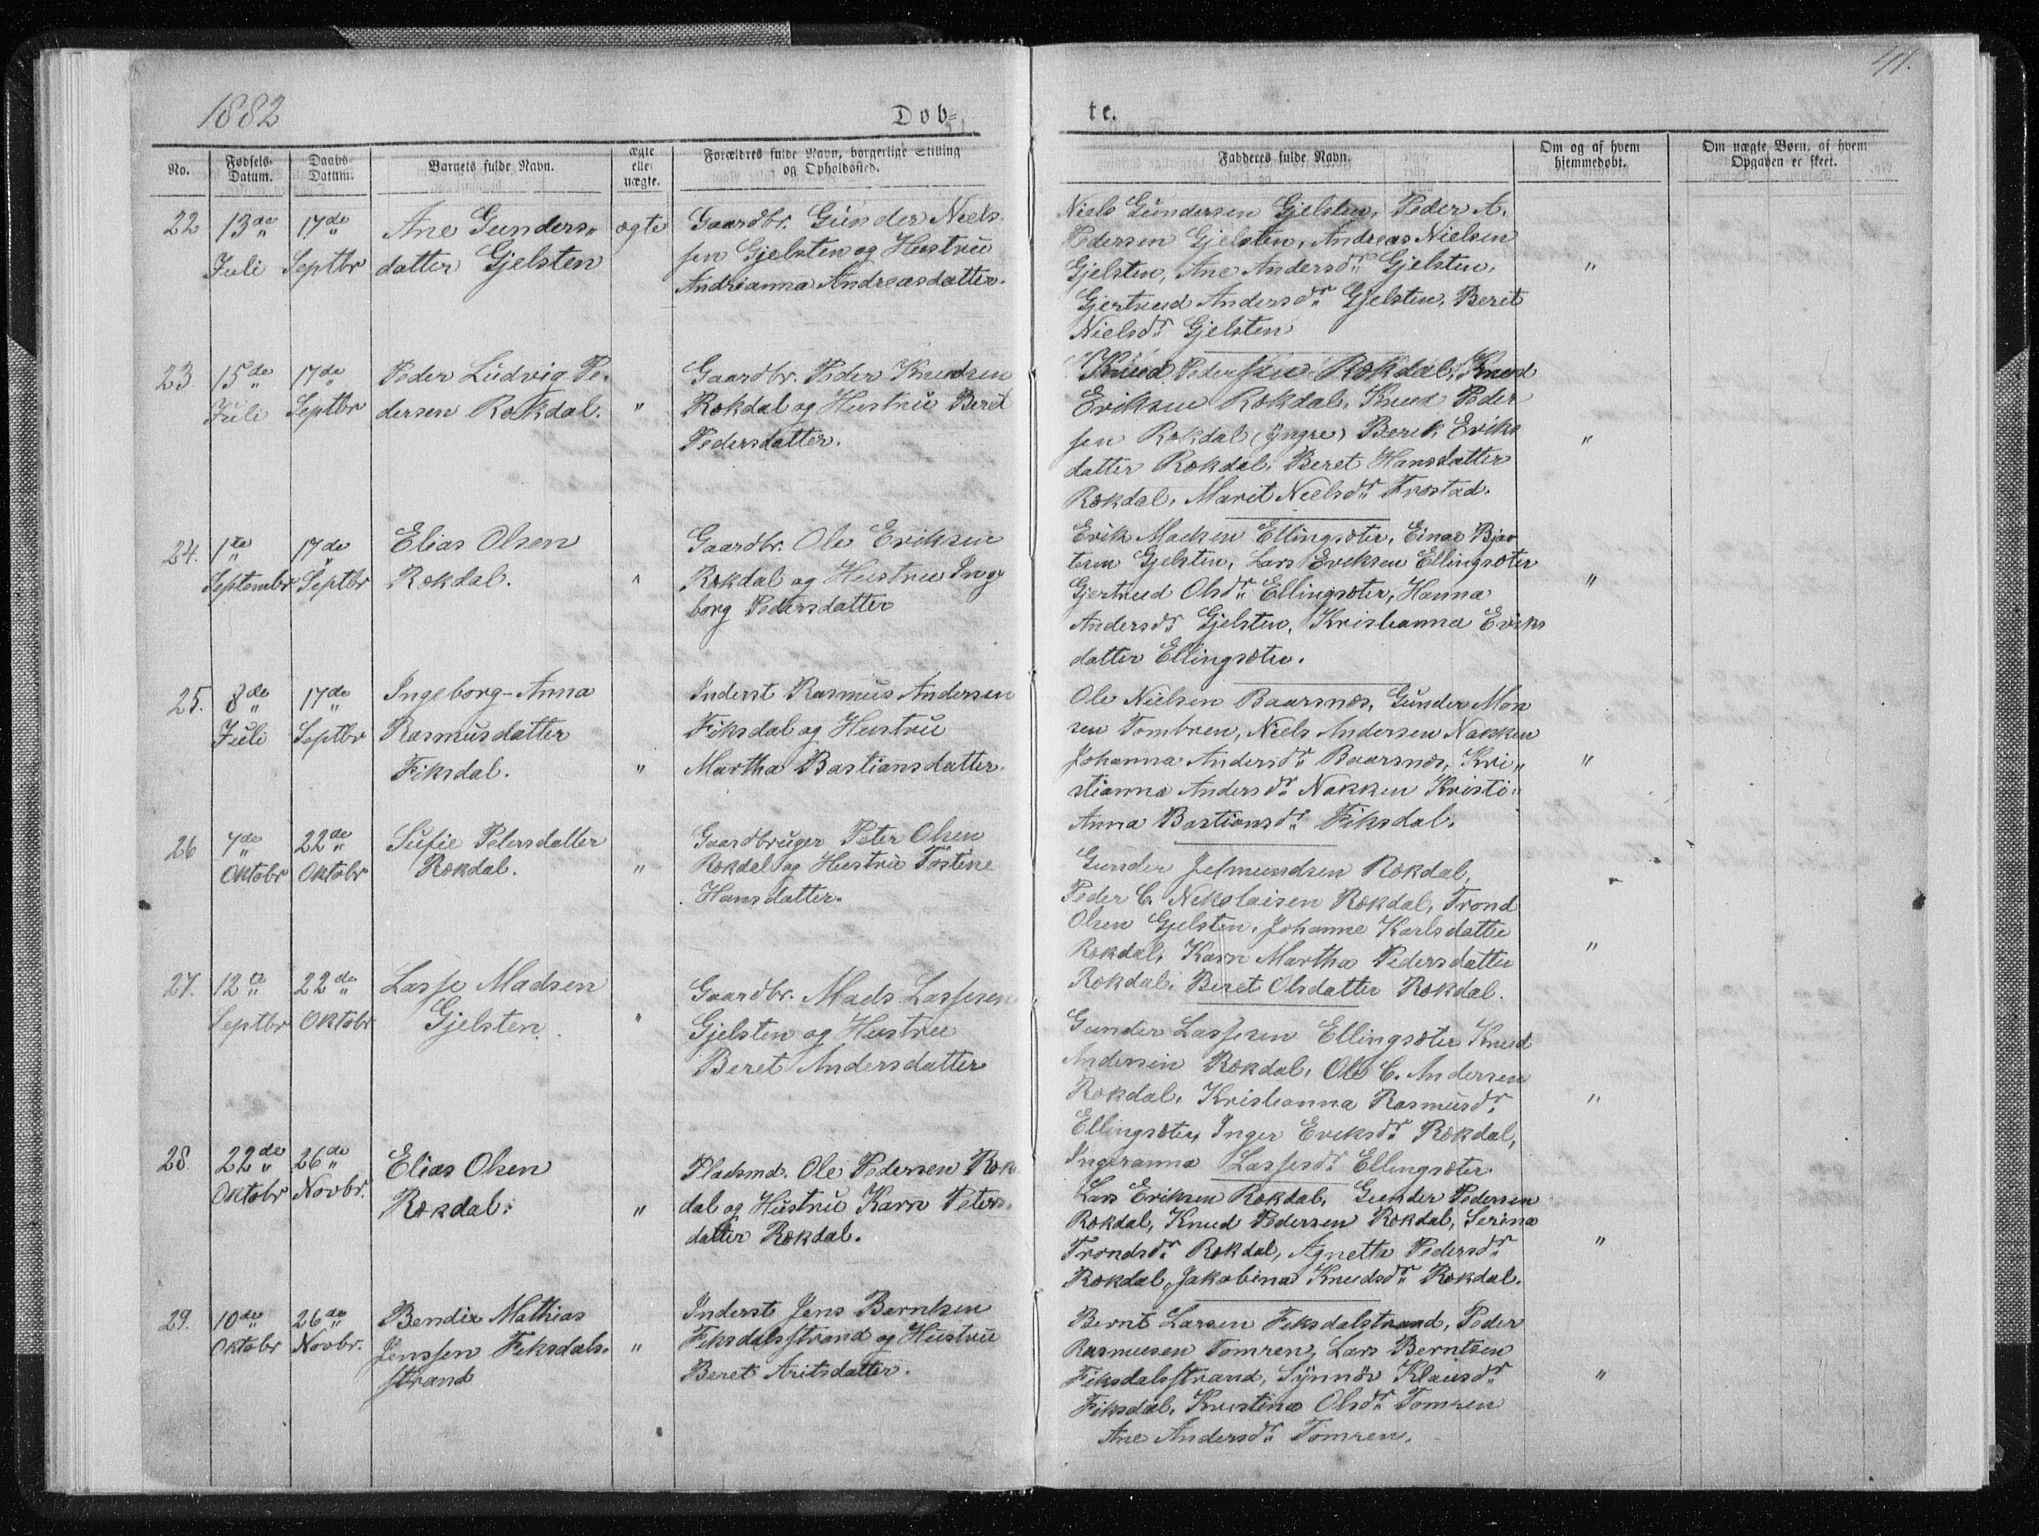 1882
Døb=
te.
41.
No.
Fødsels-
Datum.
Daabs-
Datum.
Barnets fulde Navn.
ægte
eller
uægte.
Forældres fulde Navn, borgerlige Stilling
og Opholdssted.
Fadderes fulde Navn.
Om og af hvem
hjemmedøbt.
Om uægte Børn, af hvem
Opgaven er skeet.
22
13de
Juli
17de
Septbr
Ane Gunders„
datter Gjelsten
ægte
Gaardbr. Gunder Niels
sen Gjelsten og Hustru
Andrianna Andreasdatter.
Niels Gundersen Gjelsten, Peder A.
Pedersen Gjelsten, Andreas Nielsen
Gjelsten, Ane Andersdr Gjelsten,
Gjertrud Andersdr Gjelsten, Beret
Nielsdr Gjelsten
„
23
15de
Juli
17de
Septbr
Peder Ludvig Pe-
dersen Rekdal.
„
Gaardbr. Peder Knudsen
Rekdal og Hustru Beret
Pedersdatter.
Knud Pedersen Rekdal, Knud
Eriksen Rekdal, Knud Peder
sen Rekdal (yngre) Berit Eriks
datter Rekdal, Beret Hansdatter
Rekdal, Marit Nielsdr Frostad.
„
24.
1te
Septembr
17de
Septbr
Elias Olsen
Rekdal.
„
Gaardbr. Ole Eriksen
Rekdal og Hustru Inge
borg Pedersdatter
Erik Madsen Ellingsæter, Einar Bjør
tesen Gjelsten, Lars Eriksen Ellingsæter
Gjertrud Olsdr Ellingsæter, Hanna
Andersdr Gjelsten, Kristianna Eriks
datter Ellingsæter.
„
25.
8de
Juli
17de
Septbr
Ingeborg-Anna
Rasmusdatter
Fiksdal.
„
Inderst Rasmus Andersen
Fiksdal og Hustru
Martha Bastiansdatter.
Ole Nielsen Baarsnæs, Gunder Mon
sen Tombren, Niels Andersen Nakken
Johanna Andersdr Baarsnæs, Kri„
stianna Andersdr Nakken Kristi„
Anna Bastiansdr Fiksdal.
„
26
7de
Oktobr
22de
Oktobr
Sufie Petersdatter
Rekdal.
„
Gaardbruger Peter Olsen
Rekdal og Hustru Tostine
Hansdatter.
Gunder Jesmundsen Rekdal,
Peder C. Nikolaisen Rekdal, Trond
Olsen Gjelsten, Johanne Karlsdatter
Rekdal, Karn Martha Pedersdatter
Rekdal. Beret Olsdatter Rekdal.
„
27.
12te
Septbr
22de
Oktobr
Lasse Madsen
Gjelsten.
„
Gaardbr. Mads Lassesen
Gjelsten og Hustru
Beret Andersdatter
Gunder Lassesen Ellingsæter Knud
Andersen Rekdal, Ole C. Andersen
Rekdal, Kristianna Rasmusdr
Ellingsæter, Inger Eriksdr Rekdal,
Ingeranna Lassesdr Ellingsæter
„
28.
22de
Oktobr
26de
Novbr.
Elias Olsen
Rekdal.
„
Pladsmd. Ole Pedersen Rek
dal og Hustru Karn Peters-
datter Rekdal.
Lars Eriksen Rekdal, Gunder Pedersen
Rekdal, Knud Pedersen Rekdal, Serina
Trondsdr Rekdal, Agnette Pedersdr
Rekdal, Jakobina Knudsdr Rekdal.
„
29.
10de
Oktobr
26de
Novbr.
Bendix Mathias
Jenssen Fiksdals-
strand
„
Inderst Jens Berntsen
Fiksdalsstrand og Hustru
Beret Aritsdatter.
Bernt Larsen Fiksdalstrand, Peder
Rasmusen Tomren, Lars Berntsen
Fiksdalsstrand, Synnøv Klausdr
Fiksdal, Kristina Olsdr Tomren
Ane Andersdr Tomren.
„